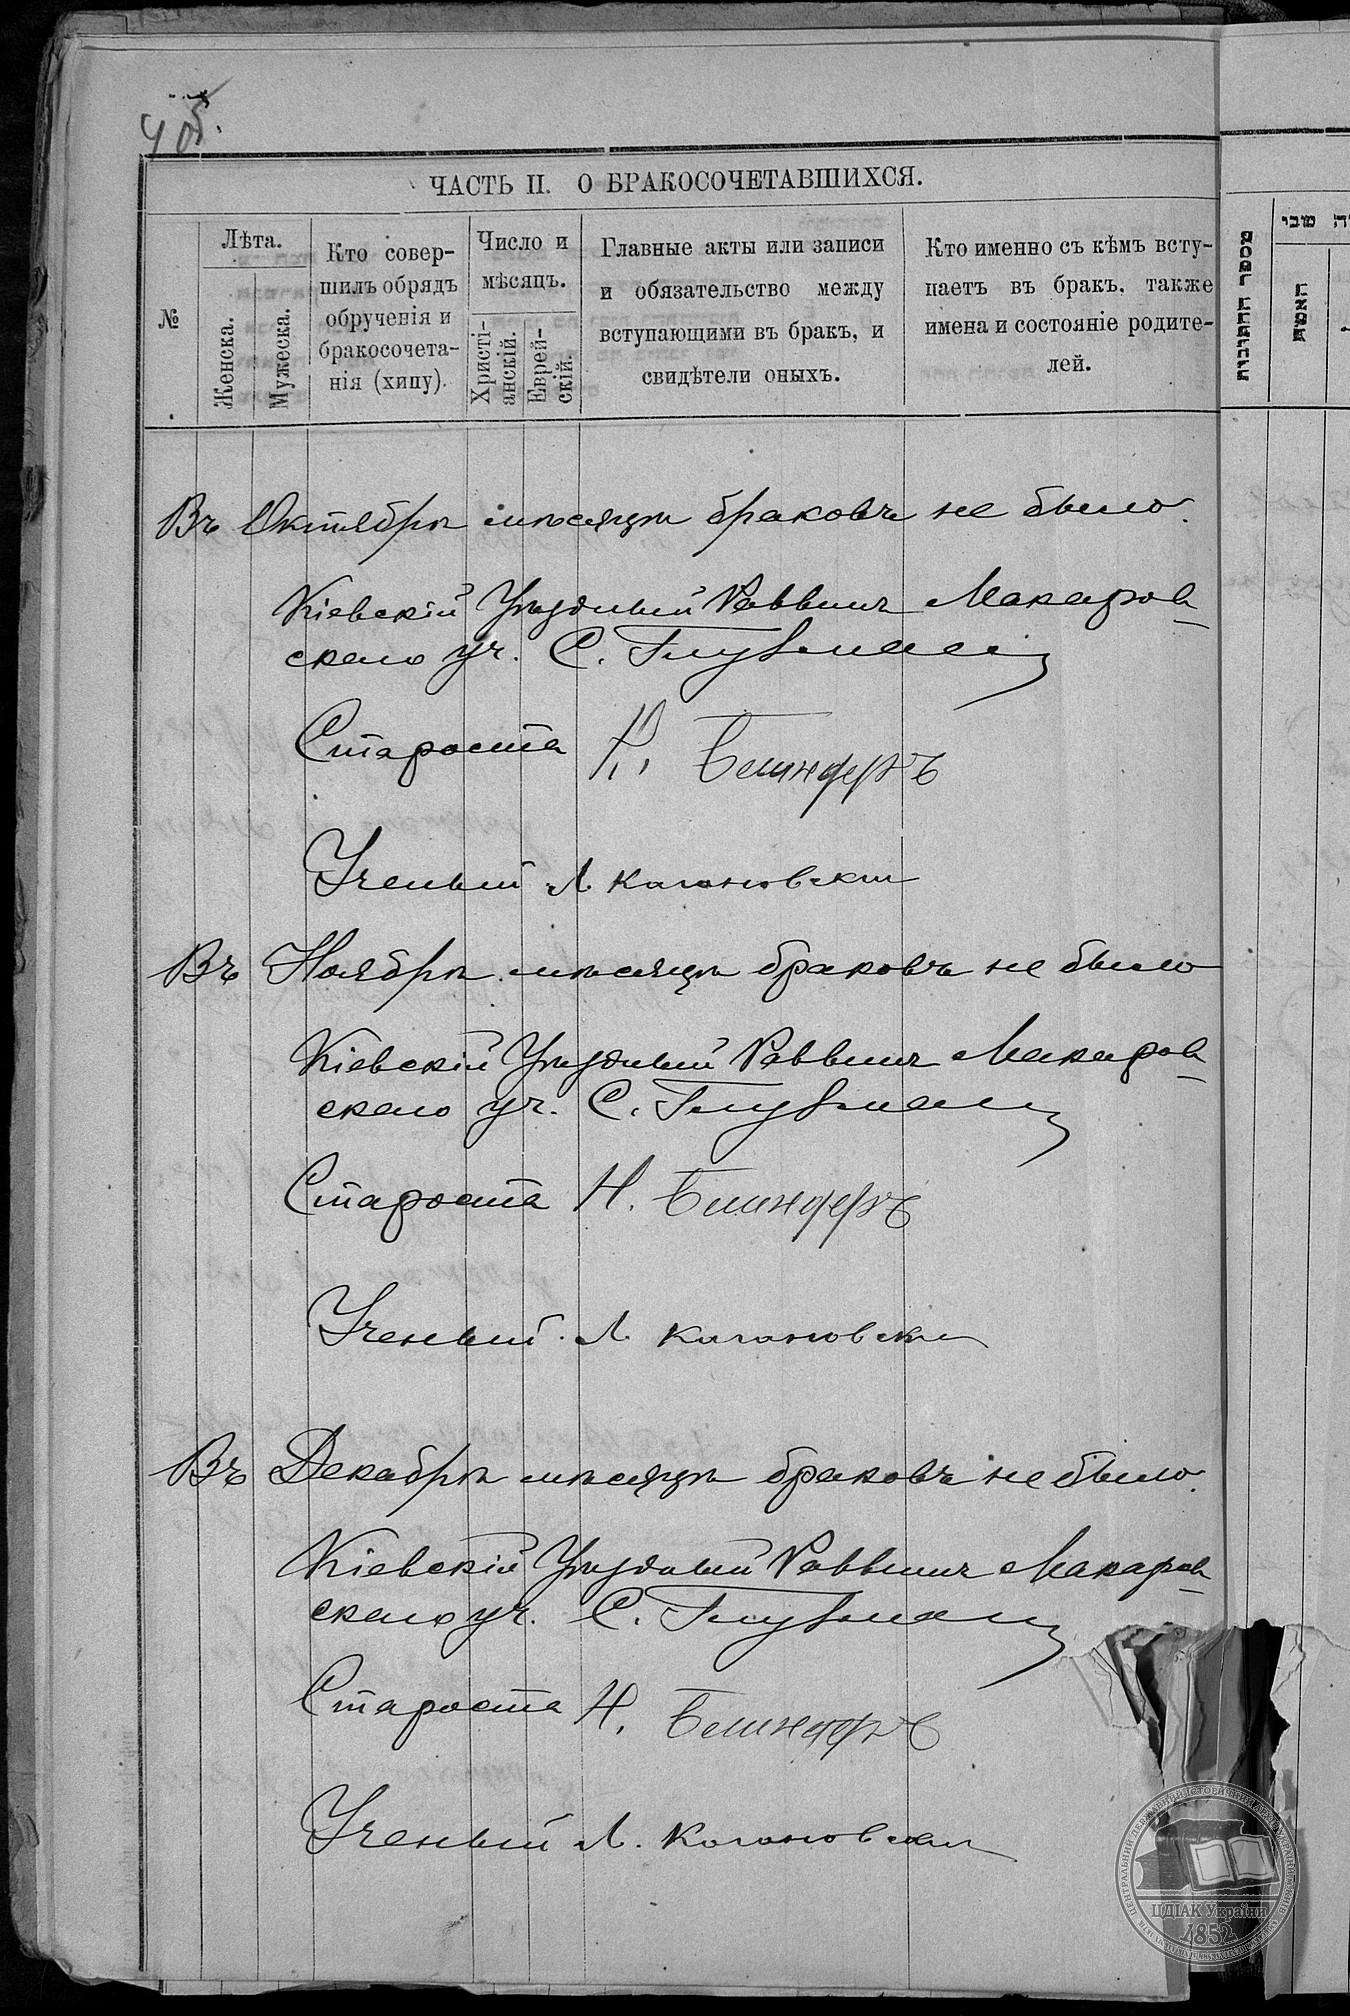 ЧАСТЬ II. О БРАКОСОЧЕТАВШИХСЯ.
№
Лѣта.
Женска.
Мужеска.
Кто совер-
шилъ обрядъ
обрученія и
бракосочета-
нія (хипу).
Число и
мѣсяцъ.
Христі-
анскій.
Еврей-
скій.
Главные акты или записи
и обязательство между
вступающими въ бракъ, и
свидѣтели оныхъ.
Кто именно съ кѣмъ всту-
паетъ въ бракъ, также
имена и состояніе родите-
лей.
מספר החתונות
האשה
Въ Октябрѣ мѣсяцѣ браковъ не было.
Кіевскій Уѣздный Раввинъ Макаров-
скаго уч. С. Глузманъ
Староста Н. Блиндеръ
Ученый Л. Кагановскій
Въ Ноябрѣ мѣсяцѣ браковъ не было
Кіевскій Уѣздный Раввинъ Макаров-
скаго уч. С. Глузманъ
Староста Н. Блиндеръ
Ученый Л. Кагановскій
Въ Декабрѣ мѣсяцѣ браковъ не было.
Кіевскій Уѣздный Раввинъ Макаров-
скаго уч. С. Глузманъ
Староста Н. Блиндеръ
Ученый Л. Кагановскій
ЦДІАК України
1852